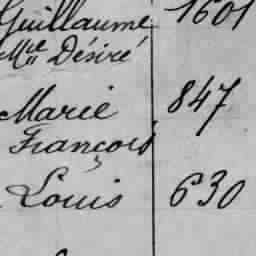 Guillaume 1601
Mlle Désiré
Marie 847
François
Louis 630